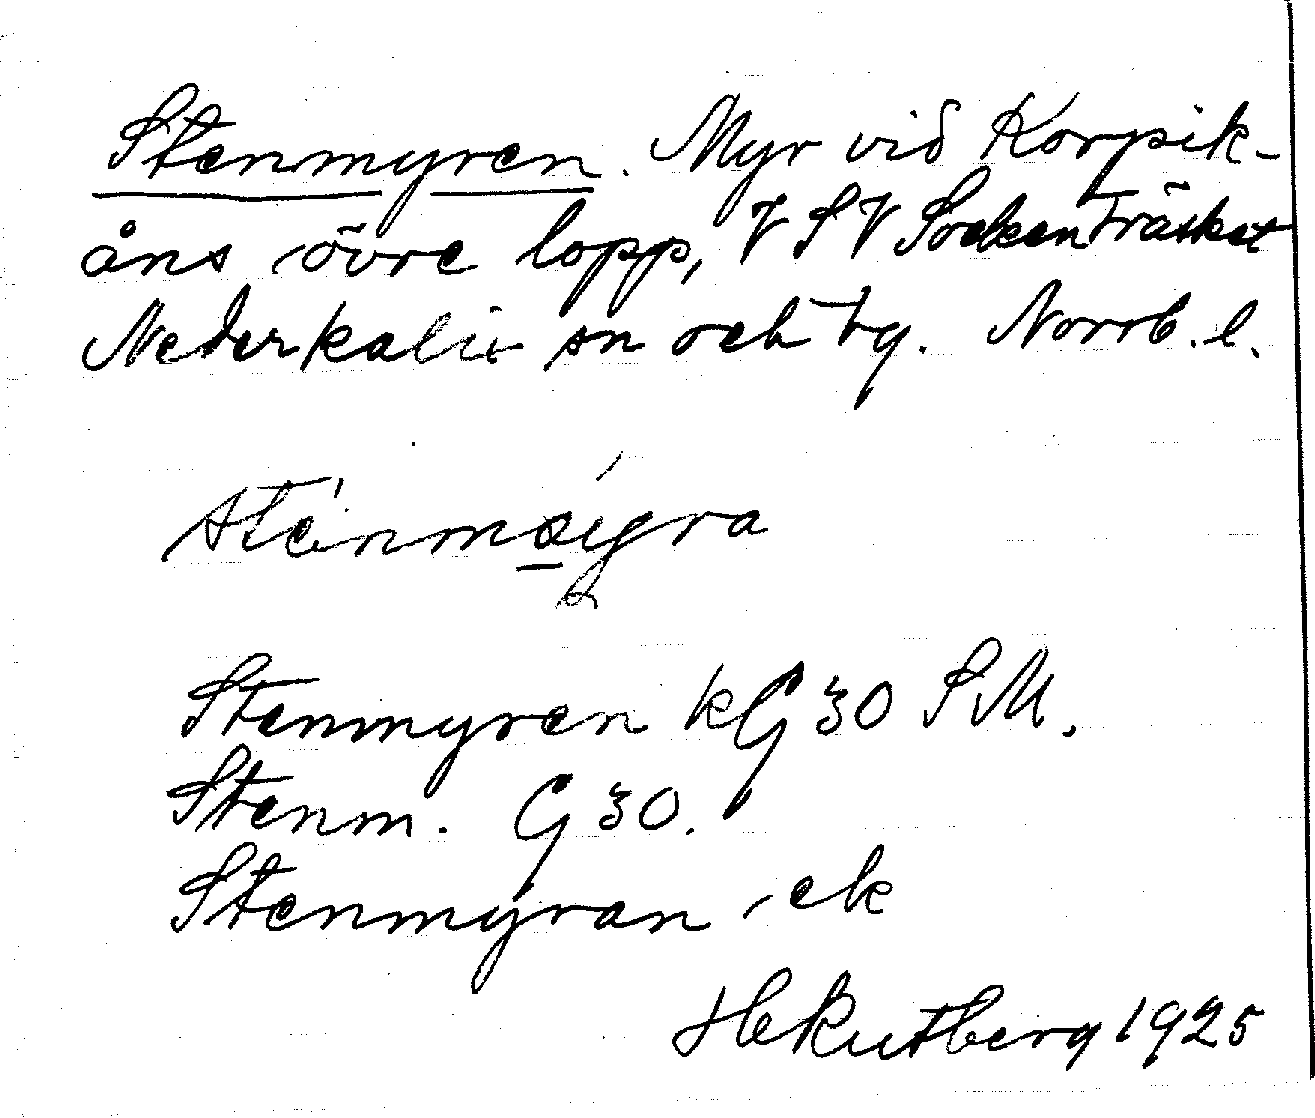 Stenmyren. Myr vid Korpik-
åns övre lopp, VSV Sockenträsket
Nederkalix sn och tg. Norrb. l.
stenmyra
Stenmyren kG 30 SM.
Stenm. G 30.
Stenmyran, ek
H Rutberg 1925